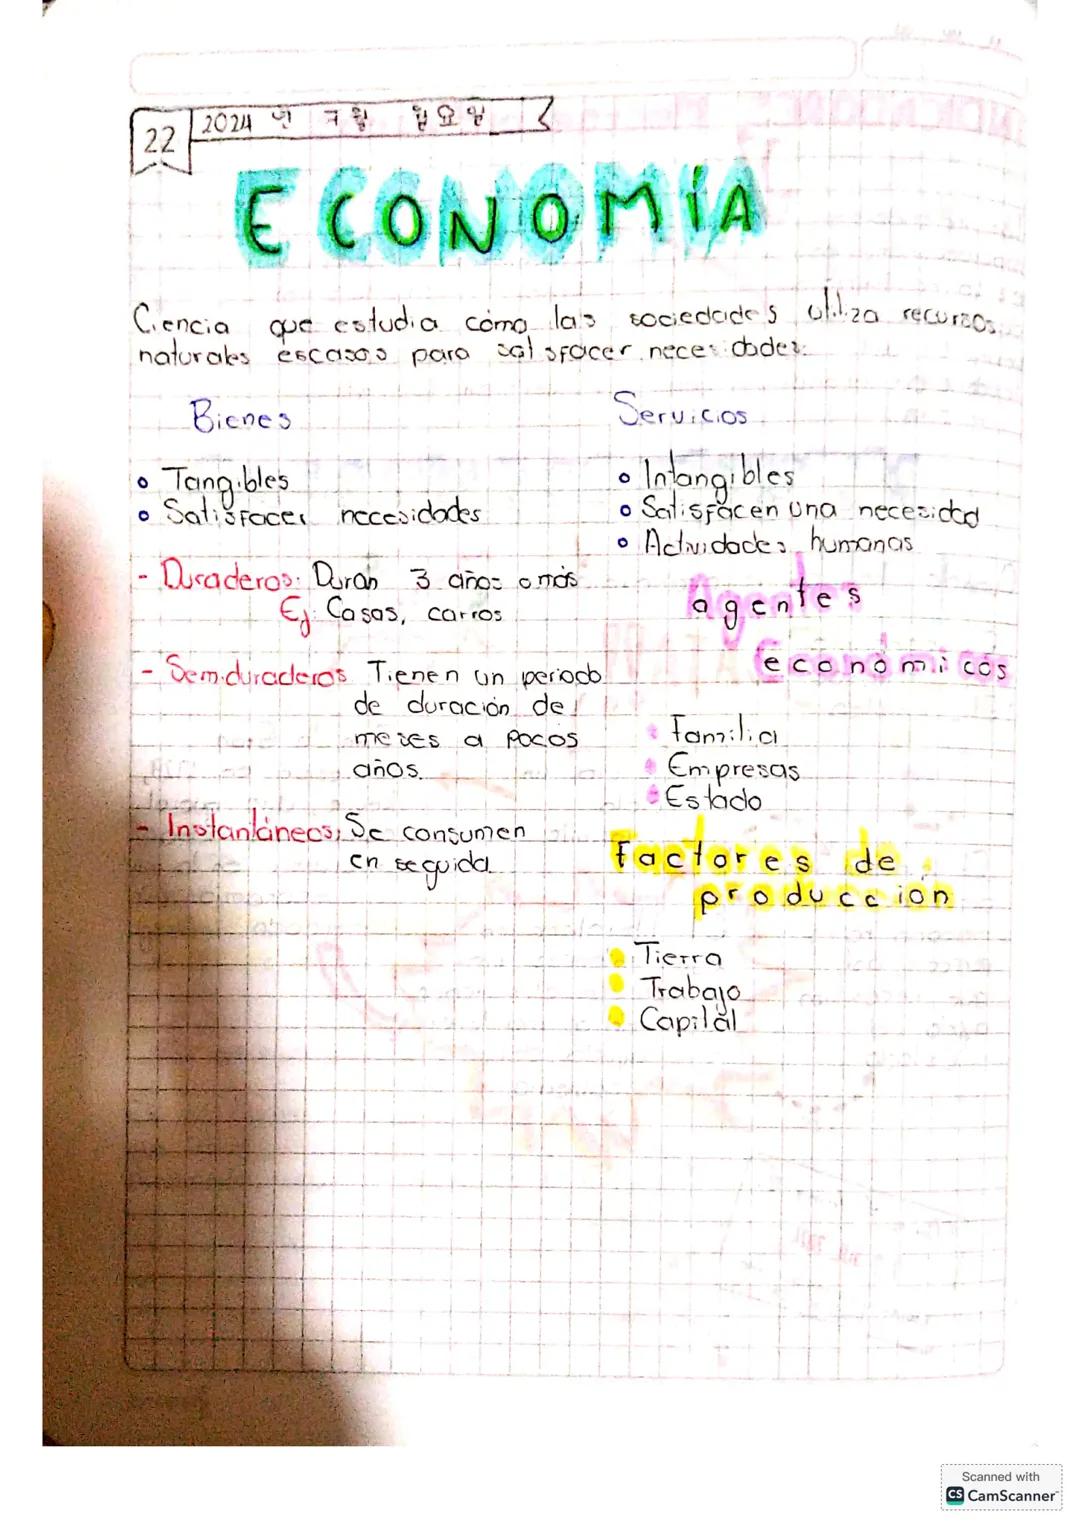 22
2024 년 7월 월요일
ECONOMÍA
Ciencia que estudia cómo las sociedades utiliza recursos
naturales escasos para satisfacer necesidades.
Bienes
• Tangibles
• Satisfacer necesidades
- Duraderos: Duran 3 años o más
Ej: Casas, carros
- Semiduraderos Tienen un periodo
de duración de
meses a pocos
años.
- Instantáneos: Se consumen
en seguida.
Servicios
• Intangibles
• Satisfacen una necesidad
• Actividades humanas
Agentes
económicos
• Familia
• Empresas
• Estado
Factores de
producción
• Tierra
• Trabajo
• Capital
Scanned with
CS CamScanner